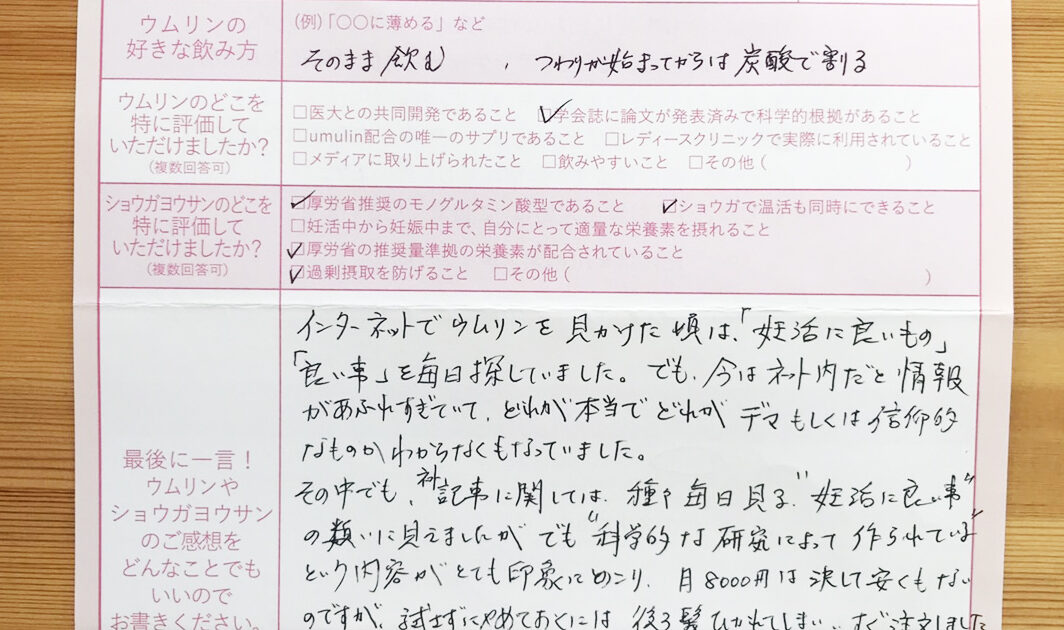 ウムリンの
好きな飲み方
(例)「〇〇に薄める」など
そのまま飲む 、 つわりが始まってからは炭酸で割る
ウムリンのどこを
特に評価して
いただけましたか?
(複数回答可)
□医大との共同開発であること ☑学会誌に論文が発表済みで科学的根拠があること
□umulin配合の唯一のサプリであること □レディースクリニックで実際に利用されていること
□メディアに取り上げられたこと □飲みやすいこと □その他 ( )
ショウガヨウサンのどこを
特に評価して
いただけましたか?
(複数回答可)
☑厚労省推奨のモノグルタミン酸型であること ☑ショウガで温活も同時にできること
□妊活中から妊娠中まで、自分にとって適量な栄養素を摂れること
☑厚労省の推奨量準拠の栄養素が配合されていること
☑過剰摂取を防げること □その他 ( )
最後に一言!
ウムリンや
ショウガヨウサン
のご感想を
どんなことでも
いいので
お書きください。
インターネットでウムリンを見かけた頃は、「妊活に良いもの」
「良い事」を毎日探していました。でも、今はネット内だと情報
があふれすぎていて、どれが本当でどれがデマもしくは信仰的
なものかわからなくもなっていました。
その中でも、記事に関しては、種々毎日見る"妊活に良い事"
の類いに見えましたが でも"科学的な研究によって作られている"
という内容がとても印象にのこり、月8000円は決して安くもない
のですが、試さずにやめておくには 後ろ髪ひかれてしまい、すぐ注文しました